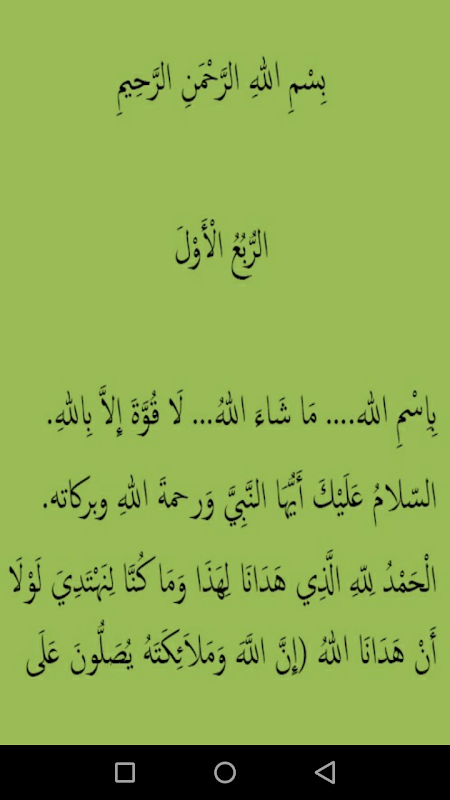 بِسْمِ اللهِ الرَّحْمَنِ الرَّحِيمِ
الرُّبُعُ الْأَوْلَ
بِاِسْمِ الله.... مَا شَاءَ اللهُ... لَا قُوَّةَ إِلاَّ بِاللهِ.
السّلامُ عَلَيْكَ أَيُّهَا النَّبِيَّ وَرحمةَ اللهِ وبركاته.
الْحَمْدُ لِلّهِ الَّذِي هَدَانَا لِهَذَا وَمَا كُنَّا لِنَهْتَدِيَ لَوْلَا
أَنْ هَدَانَا اللهُ (إِنَّ اللَّهَ وَمَلاَئِكَتَهُ يُصَلُّونَ عَلَى